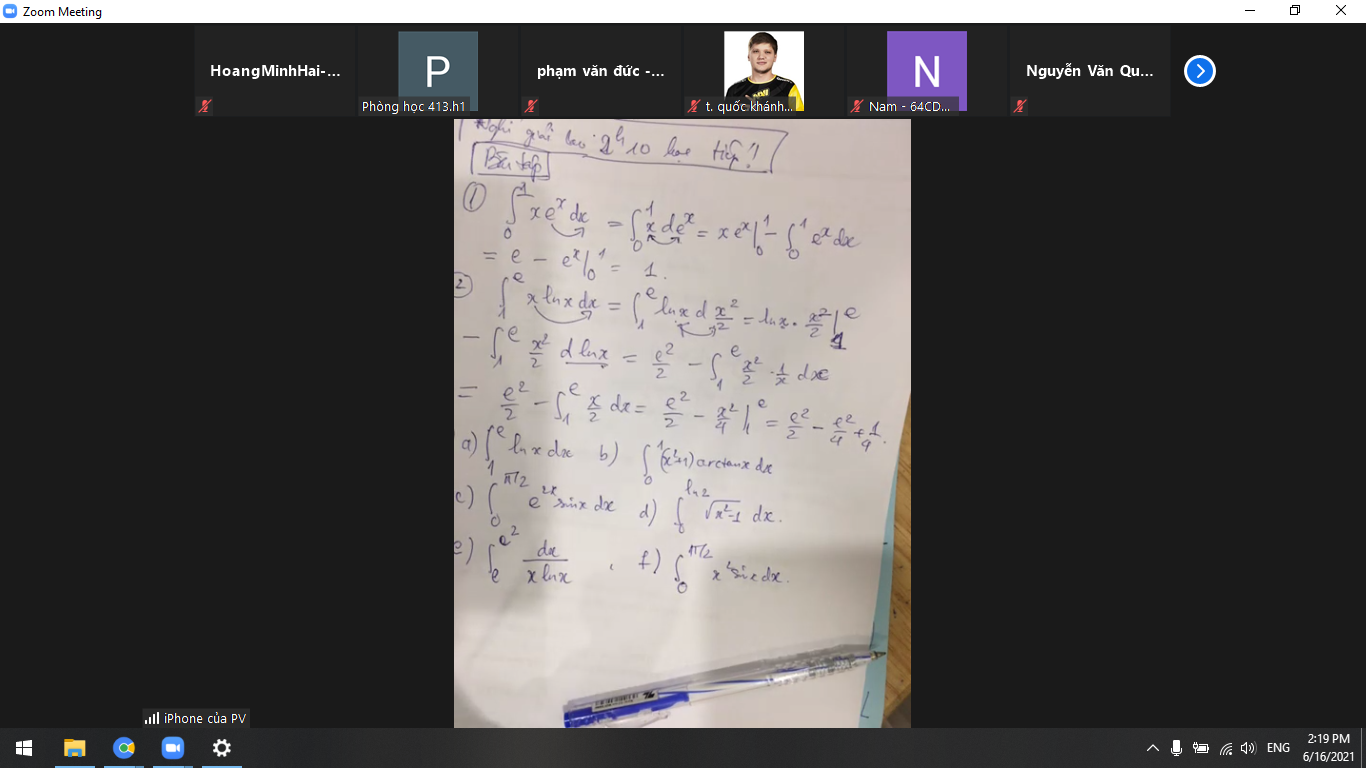 Zoom Meeting
HoangMinhHai-...
P
phạm văn đức -...
N
Nguyễn Văn Qu...
Phòng học 413.h1
t. quốc khánh...
Nam - 64CD...
Nghỉ giải lao 2h10 học tiếp!
Bài tập
① ∫₀¹ xeˣdx = ∫₀¹ x deˣ = x eˣ|₀¹ - ∫₀¹ eˣdx
= e - eˣ|₀¹ = 1.
② ∫₁ᵉ x lnx dx = ∫₁ᵉ lnx d x²/2 = lnx · x²/2 |₁ᵉ
- ∫₁ᵉ x²/2 d lnx = e²/2 - ∫₁ᵉ x²/2 · 1/x dx
= e²/2 - ∫₁ᵉ x/2 dx = e²/2 - x²/4 |₁ᵉ = e²/2 - e²/4 + 1/4.
a) ∫₁ᵉ lnx dx b) ∫₀¹ (x²+1) arctanx dx
c) ∫₀^π/2 e²ˣ sinx dx d) ∫₀^ln2 √x²-1 dx.
e) ∫ₑ^e² dx / x lnx , f) ∫₀^π/2 x² sinx dx.
iPhone của PV
ENG
2:19 PM
6/16/2021